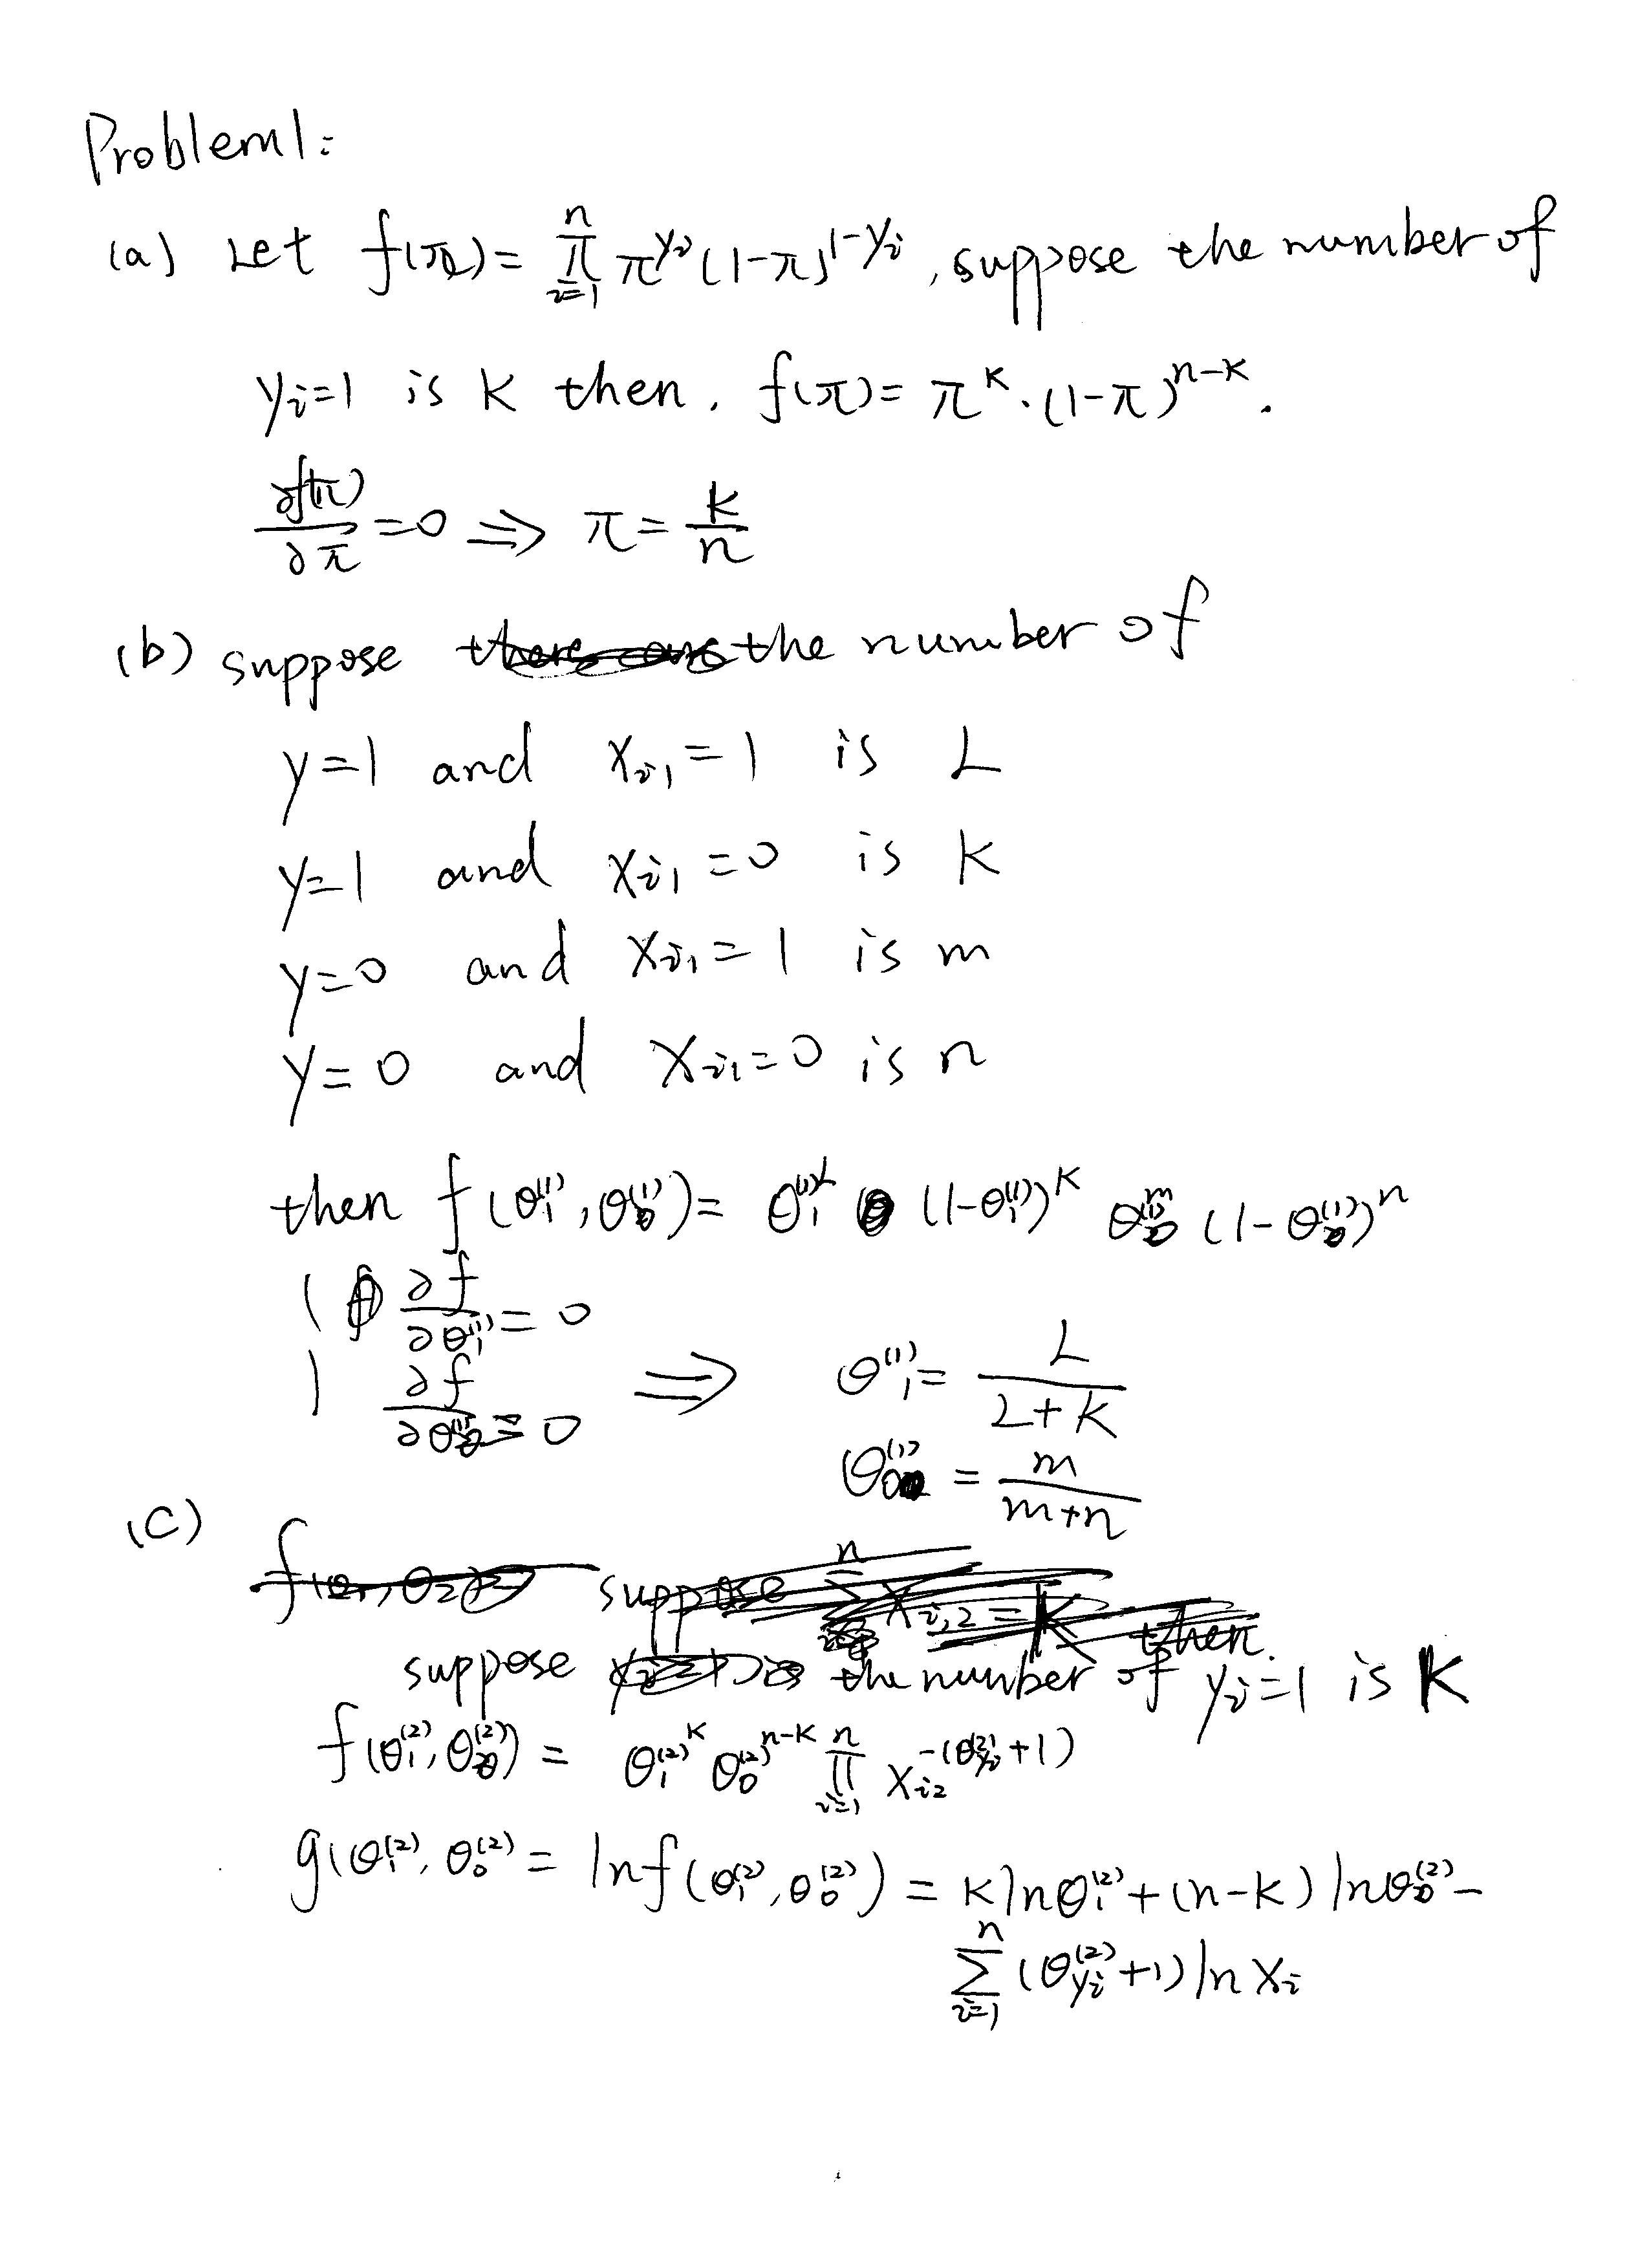 Problem1:
(a) Let f(π) = ∏_{i=1}^{n} π^{y_i} (1-π)^{1-y_i}, suppose the number of
y_i=1 is K then. f(π) = π^K · (1-π)^{n-K}.
∂f(π)/∂π = 0 ⇒ π = K/n
(b) suppose the number of
y=1 and X_{i1}=1 is L
y=1 and X_{i1}=0 is K
y=0 and X_{i1}=1 is m
y=0 and X_{i1}=0 is n
then f(θ_1^{(1)}, θ_0^{(1)}) = θ_1^{(1)L} (1-θ_1^{(1)})^K θ_0^{(1)m} (1-θ_0^{(1)})^n
∂f/∂θ_1^{(1)} = 0
∂f/∂θ_0^{(1)} = 0 ⇒ θ_1^{(1)} = L/(L+K)
θ_0^{(1)} = m/(m+n)
(c)
f(θ_1, θ_2)= suppose ∑^{n} X_{i,2} = K then.
suppose the number of y_i=1 is K
f(θ_1^{(2)}, θ_0^{(2)}) = θ_1^{(2)K} θ_0^{(2)n-K} ∏_{i=1}^{n} X_{i2}^{-(θ_{y_i}^{(2)}+1)}
g(θ_1^{(2)}, θ_0^{(2)} = ln f(θ_1^{(2)}, θ_0^{(2)}) = K ln θ_1^{(2)} + (n-K) ln θ_0^{(2)} -
∑_{i=1}^{n} (θ_{y_i}^{(2)}+1) ln X_i